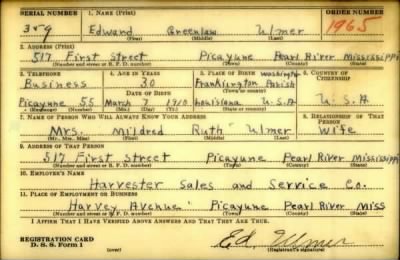 SERIAL NUMBER 1. NAME (Print) ORDER NUMBER
359 Edward Greenlaw Ulmer 1965
(First) (Middle) (Last)
2. ADDRESS (Print)
517 First Street Picayune Pearl River Mississippi
(Number and street or R. F. D. number) (Town) (County) (State)
3. TELEPHONE 4. AGE IN YEARS 5. PLACE OF BIRTH 6. COUNTRY OF CITIZENSHIP
Business 30 Franklington Washington Parish
(Town or county)
DATE OF BIRTH
Picayune 55 March 7 1910 Louisiana U.S.A U.S.A
(Exchange) (Number) (Mo.) (Day) (Yr.) (State or country)
7. NAME OF PERSON WHO WILL ALWAYS KNOW YOUR ADDRESS 8. RELATIONSHIP OF THAT PERSON
Mrs. Mildred Ruth Ulmer Wife
(Mr., Mrs., Miss) (First) (Middle) (Last)
9. ADDRESS OF THAT PERSON
517 First Street Picayune Pearl River Mississippi
(Number and street or R. F. D. number) (Town) (County) (State)
10. EMPLOYER'S NAME
Harvester Sales and Service Co.
11. PLACE OF EMPLOYMENT OR BUSINESS
Harvey Avenue Picayune Pearl River Miss
(Number and street or R. F. D. number) (Town) (County) (State)
I AFFIRM THAT I HAVE VERIFIED ABOVE ANSWERS AND THAT THEY ARE TRUE.
REGISTRATION CARD
D. S. S. Form 1 (over) Ed. Ulmer
(Registrant's signature)